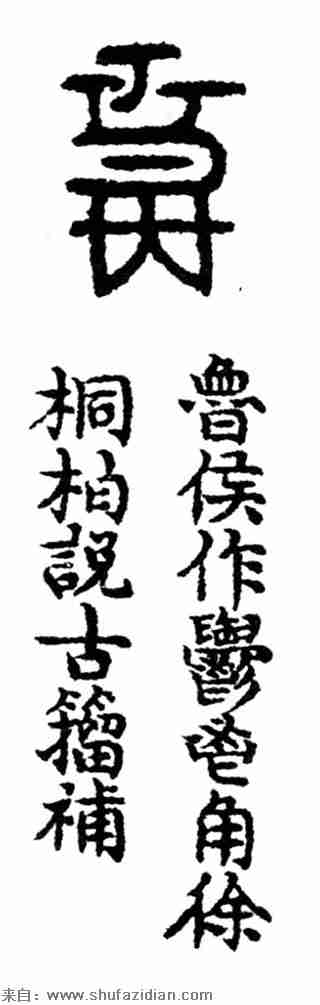 魯侯作鬱鬯角徐
桐柏說古籀補
来自：www.shufazidian.com